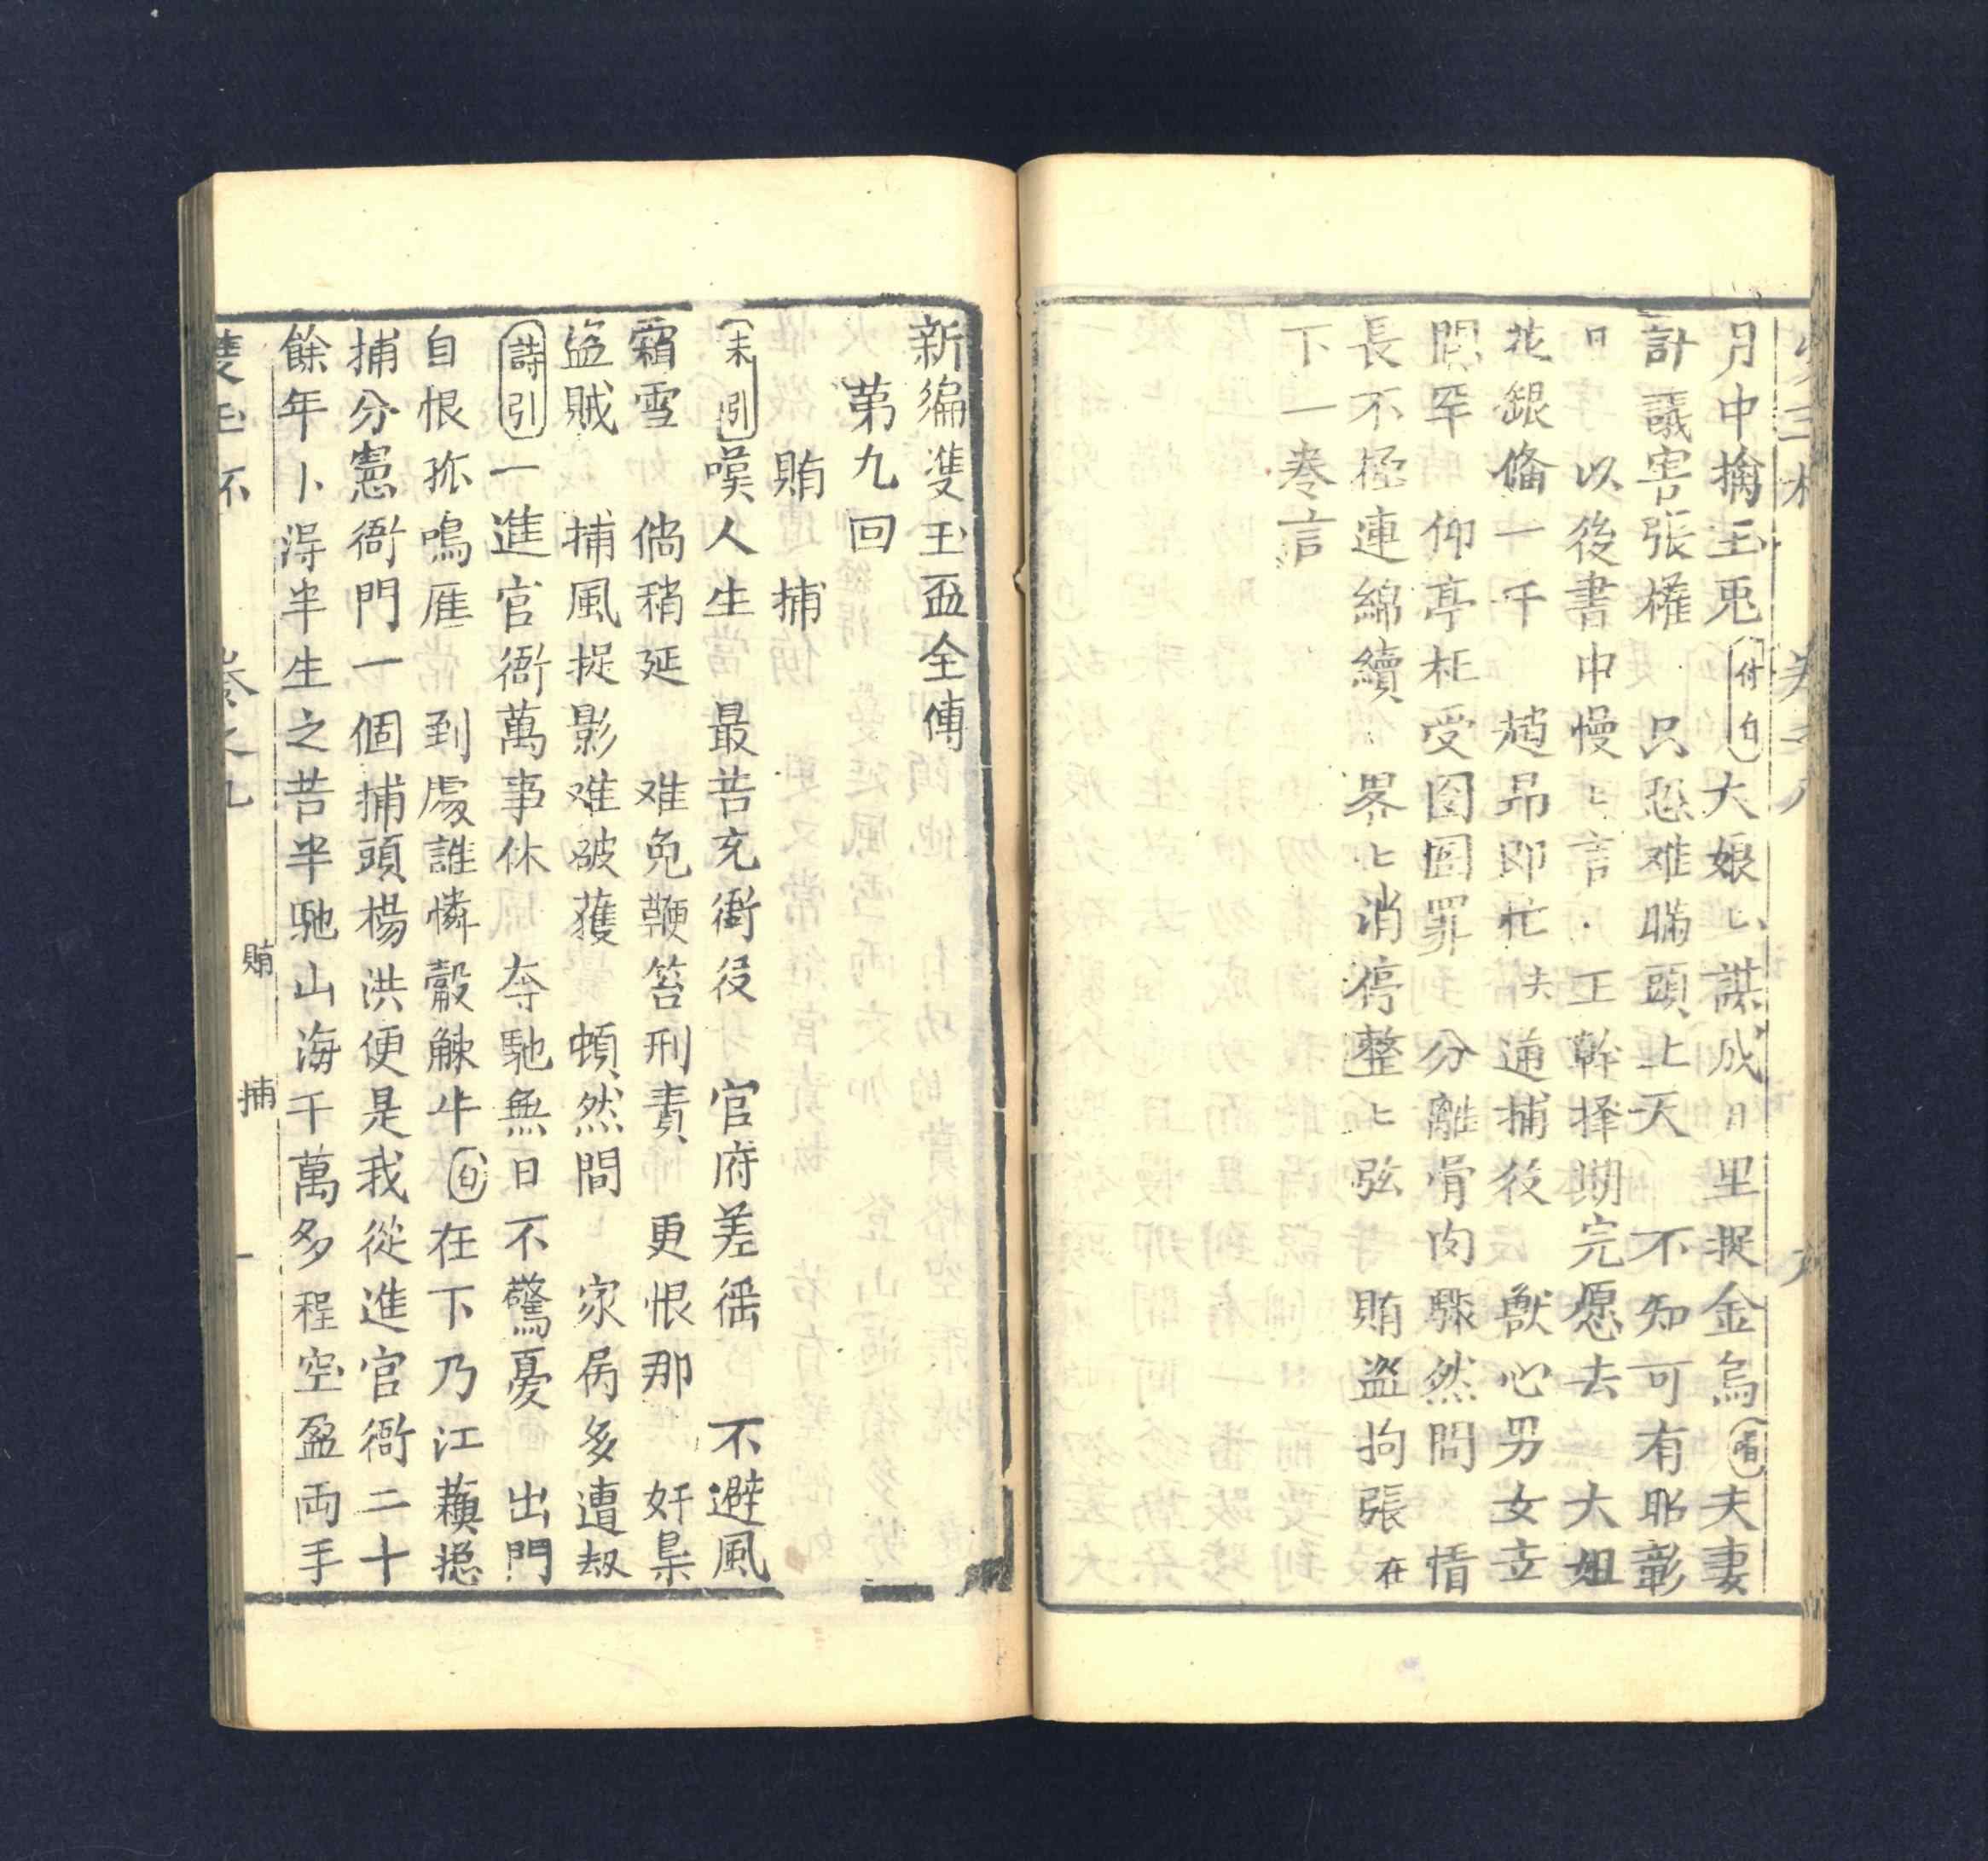 月中擒玉兎付白大娘匕謀成日里捉金烏唱夫妻
計議害張權　只恐难瞞頭上天　不知可有昭彰
日　以後書中慢匕言　王幹择期完愿去　大姐
花銀俻一千　趙昴即忙夫通捕役　獣心男女立
罔罕　仰亭枉受囹圄罪　分離骨肉驟然間　情
長不极連綿續　畧匕消停整匕弦　賄盗拘張在
下一巻言
新編雙玉盃全傳
第九回
賄　捕
末引嘆人生　最苦充衙役　官府差徭　不避風
霜雪　倘稍延　难免鞭笞刑責　更恨那　奸梟
盗賊　捕風捉影难破獲　頓然間　家居多遭刼
詩引一進官衙萬事休　奔馳無日不驚憂　出門
自恨孤鳴雁　到處誰憐觳觫牛　白在下乃江蘓揔
捕分憲衙門一個捕頭楊洪便是我從進官衙二十
餘年卜淂半生之苦半馳山海千萬多程空盈両手
雙玉杯　卷之九　賄　捕　一